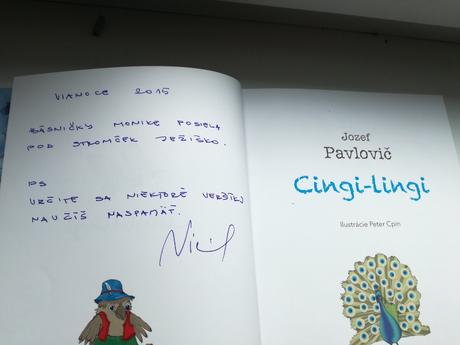 VIANOCE 2015
BÁSNIČKY MONIKE POSIELA
POD STROMČEK JEŽIŠKO.
PS
URČITE SA NIEKTORÉ VERŠÍKY
NAUČÍŠ NASPAMÄŤ.
Jozef
Pavlovič
Cingi-lingi
Ilustrácie Peter Cpin